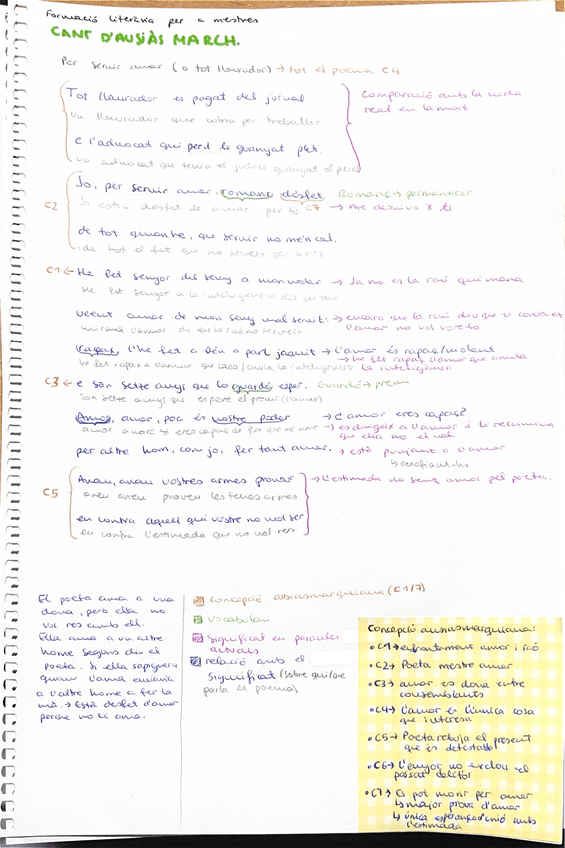 Formació literària per a mestres
CANT D'AUSIÀS MARCH.
Per servir amor (o tot llaurador) → tot el poema C4
Tot llaurador es pagat del jornal
un llaurador que cobra per treballar
e l'advocat qui perd lo guanyat plet.
un advocat que tenia el judici guanyat el perd
Comparació amb la vida
real en la mort
C2
Jo, per servir amor, romanc désfet Romanç → permaneixer
Jo estic desfet de amor per tu C7 → me desviva x ti
de tot quant he, que servir no me'n cal.
C1 ← He fet senyor del seny a mon voler → Ja no es la raó qui mana
He fet senyor a la intel·ligencia del
veent amor de mon seny mal servit. → encara que la raó diu que
l'amor no vol vore-ho
rapaç l'he fet a Déu a part jaquit → l'amor és rapaç/violent
→ he fet rapaç l'amor que anula
la inteligència
C3 ← e són setze anys que lo guardó esper. Guardó → premi
Son setze anys que espere el premi (l'amor)
Amor, amor, poc és vostre poder → d'amor eres capaç?
→ es dirigeix a l'amor i li recrimina
que ella no el vol.
per altre hom, com jo, fer tant amar. → està punxant a l'amor
↳ desafiant-lo
C5
Anau, anau vostres armes provar → L'estimada no sent amor pel poeta.
aneu aneu proveu les teues armes
en contra aquell qui vostre no vol ser
en contra l'estimada que no vol res
El poeta ama a una
dona, pero ella no
vol res amb ell.
Ella ama a un altre
home segons diu el
poeta. Si ella sapiguera
quan l'ama
a l'altre home a fer la
mà. → Està desfet d'amor
perque no li ama.
concepció ausiasmarquiana (C1/7)
vocabulari
significat en paraules
actuals
relació amb el
significat (sobre qui/que
parla el poema)
Concepció ausiasmarquiana:
• C1 → enfrontament amor i raó
• C2 → Poeta mestre amar
• C3 → amor es dona entre
consemblants
• C4 → L'amor és l'única cosa
que interessa
• C5 → Poeta rebuja el present
que és detestable
• C6 → L'enyor no exclou el
passat delitós
• C7 → Es pot morir per amor
↳ major prova d'amor
↳ única esperança d'unió amb
l'estimada